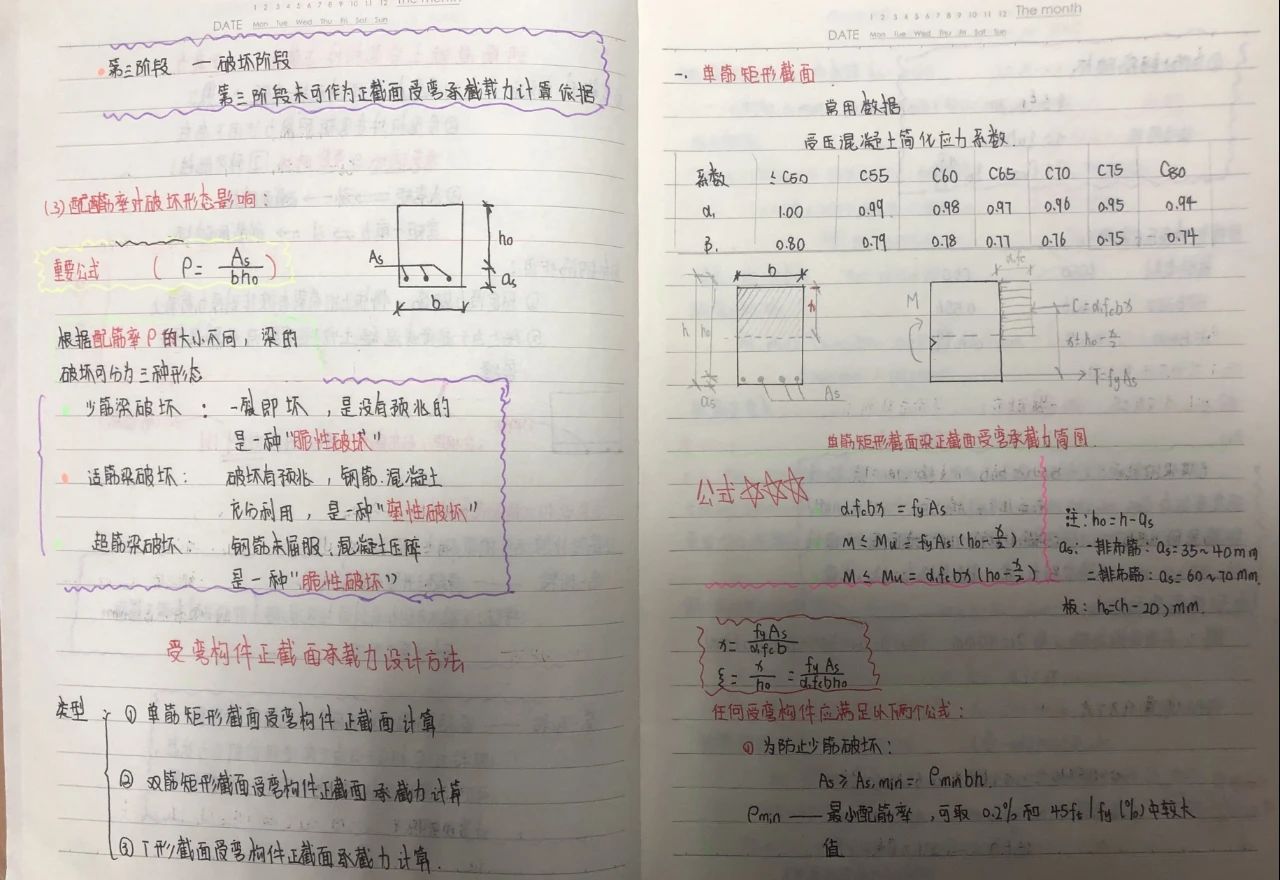 1 2 3 4 5 6 7 8 9 10 11 12 The month
DATE Mon Tue Wed Thu Fri Sat Sun
第三阶段 — 破坏阶段
第三阶段末可作为正截面受弯承截载力计算依据
(3)配筋率对破坏形态影响:
重要公式 ( ρ = As/bh₀ )
As
h₀
as
b
根据配筋率ρ的大小不同,梁的
破坏可分为三种形态
少筋梁破坏: 一裂即坏,是没有预兆的
是一种"脆性破坏"
适筋梁破坏: 破坏有预兆,钢筋.混凝土
充分利用,是一种"塑性破坏"
超筋梁破坏: 钢筋未屈服,混凝土压碎
是一种"脆性破坏"
受弯构件正截面承载力设计方法
类型 ① 单筋矩形截面受弯构件正截面计算
② 双筋矩形截面受弯构件正截面承截力计算
③ T形截面受弯构件正截面承截力计算.
1 2 3 4 5 6 7 8 9 10 11 12 The month
DATE Mon Tue Wed Thu Fri Sat Sun
一. 单筋矩形截面
常用数据
受压混凝土简化应力系数.
系数 ≤C50 C55 C60 C65 C70 C75 C80
α₁ 1.00 0.99 0.98 0.97 0.96 0.95 0.94
β₁ 0.80 0.79 0.78 0.77 0.76 0.75 0.74
b
h h₀
as
As
M
α₁fc
C=α₁fcbx
z=h₀-x/2
T=fyAs
单筋矩形截面梁正截面受弯承截力简图
公式☆☆☆
α₁fcbx = fyAs
M ≤ Mu = fyAs(h₀-x/2)
M ≤ Mu = α₁fcbx(h₀-x/2)
注: h₀=h-as
as: 一排布筋: as=35~40mm
二排布筋: as=60~70mm
板: h₀=(h-20)mm.
x = fyAs/α₁fcb
ξ = x/h₀ = fyAs/α₁fcbh₀
任何受弯构件应满足以下两个公式:
① 为防止少筋破坏:
As ≥ As,min = ρminbh.
ρmin —— 最小配筋率,可取0.2%和45ft/fy(%)中较大
值